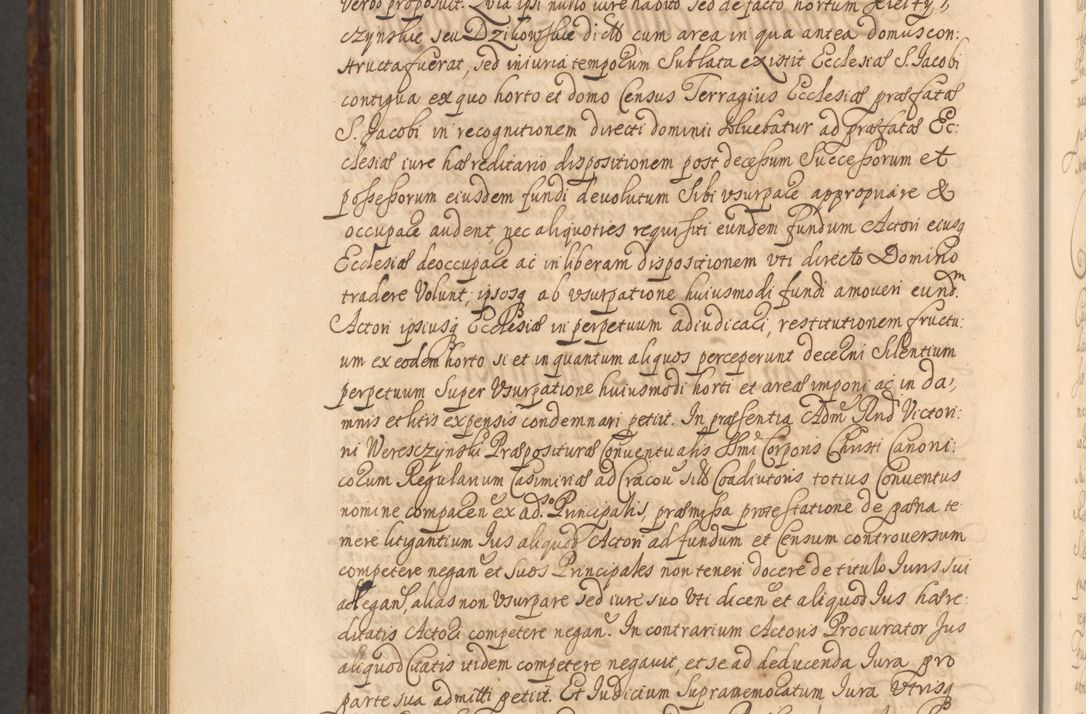 verbo proposuit. Quia ipsi nullo iure habito sed de facto hortum
czynskie seu Dzikowskie dictũ cum area in qua antea domus con:
structa fuerat, sed iniuria temporum sublata existit Ecclesiæ S. Jacobi
contigua ex quo horto et domo Census Terragius Ecclesiæ præfatæ
S. Jacobi in recognitionem directi dominii soluebatur ad præfatæ Ec:
clesiæ iure hæreditario dispositionem post decessum Successorum et
possessorum eiusdem fundi devolutum sibi vsurpare appropriare &
occupare audent nec aliquoties requisiti eundem fundum Actori eiusq
Ecclesiæ deoccupare ac in liberam dispositionem vti directo Domino
tradere volunt, ipsosq ab vsurpatione huiusmodi fundi amoveri eundᵐ
Actori ipsiusq Ecclesiæ in perpetuum adiudicari, restitutionem fructu:
um ex eodem horto si et in quantum aliquos perceperunt decerni silentium
perpetuum super vsurpatione huiusmodi horti et areæ imponi ac in da,
mnis et litis expensis condemnari petiit. In præsentia Adm. Rnd Victori:
ni Weresczynski Præposituræ Conventualis Ssmi Corporis Christi Canoni:
corum Regularium Casimiriæ ad Cracou Coadiutoris totius Conventus
nomine comparen ex adso Principalis, præmissa protestatione de pæna te
mere litigantium Jus aliquod Actori ad fundum et Censum controversum
competere negan et suos Principales non teneri docere de titulo Juris sui
allegans, alias non vsurpare sed iure suo vti dicen et aliquod Jus hære:
ditatis Actori competere negan. In contrarium Actoris Procurator Jus
aliquod Citatis itidem competere negavit, et se ad deducenda Jura pro
parte sua admitti petiit. Et Judicium supramemoratum Jura vtrisq